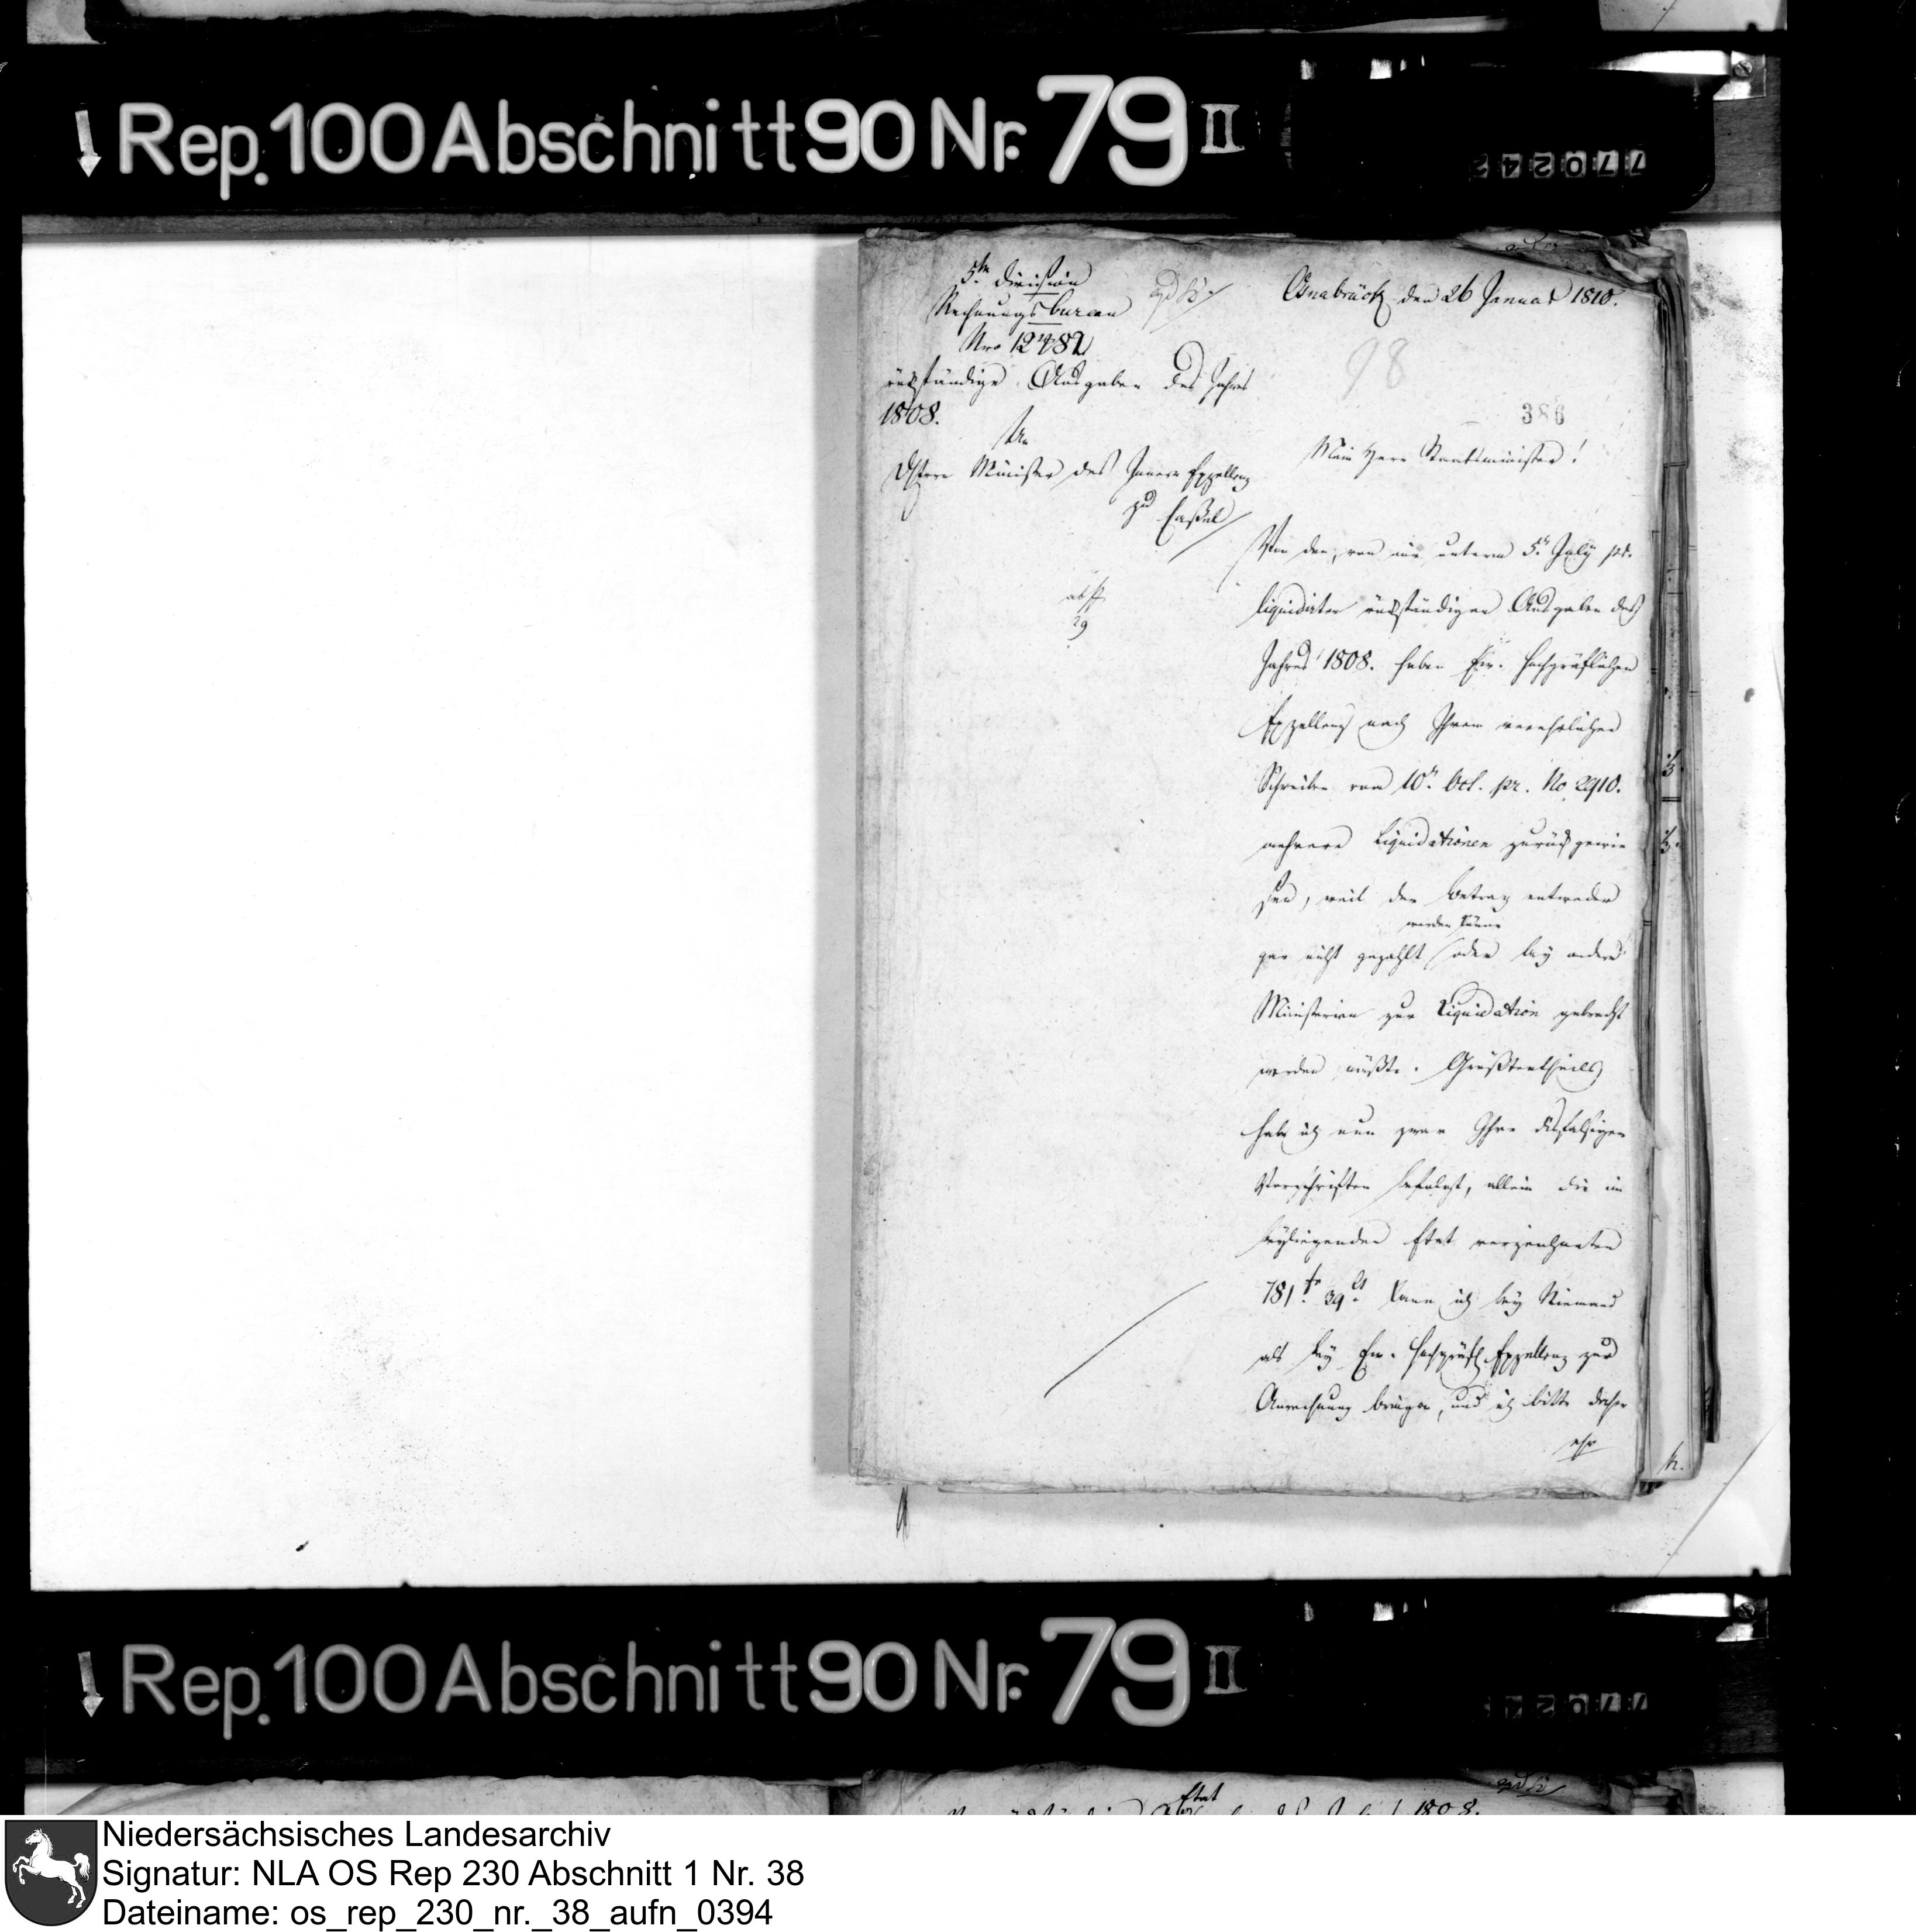 Rep. 100 Abschnitt 90 Nr. 79 II
77024
5te Division
Rechnungsbureau
Nro 12782
rückständige Ausgaben des Jahres
1808.
An
Herrn Minister des Innern Exzellenz
zu Cassel
Osnabrück den 26 Januar 1810.
98
386
Mein Herr Staatsminister!
abss
29
Von den, von mir unterm 5n July pr.
liquidirten rückständigen Ausgaben des
Jahres 1808. haben Ew. Hochgräflichen
Exzellenz nach Ihrem verehrlichen
Schreiben vom 10n Oct. pr. No 2910.
mehrere Liquidationen zurückgewie
sen, weil der Betrag entweder
werden könne
gar nicht gezahlt oder bey andern
Ministerien zur Liquidation gebracht
werden müßte. Größtentheils
habe ich nun zwar Ihre disfalsigen
Vorschriften befolgt, allein die im
beyliegenden Etat verzeichneten
781 fr 39 ct kann ich bey Niemand
als bey Ew. Hochgräfl Exzellenz zur
Anrechnung bringen, und ich bitte daher
Rep. 100 Abschnitt 90 Nr. 79 II
Etat
1808.
Niedersächsisches Landesarchiv
Signatur: NLA OS Rep 230 Abschnitt 1 Nr. 38
Dateiname: os_rep_230_nr._38_aufn_0394